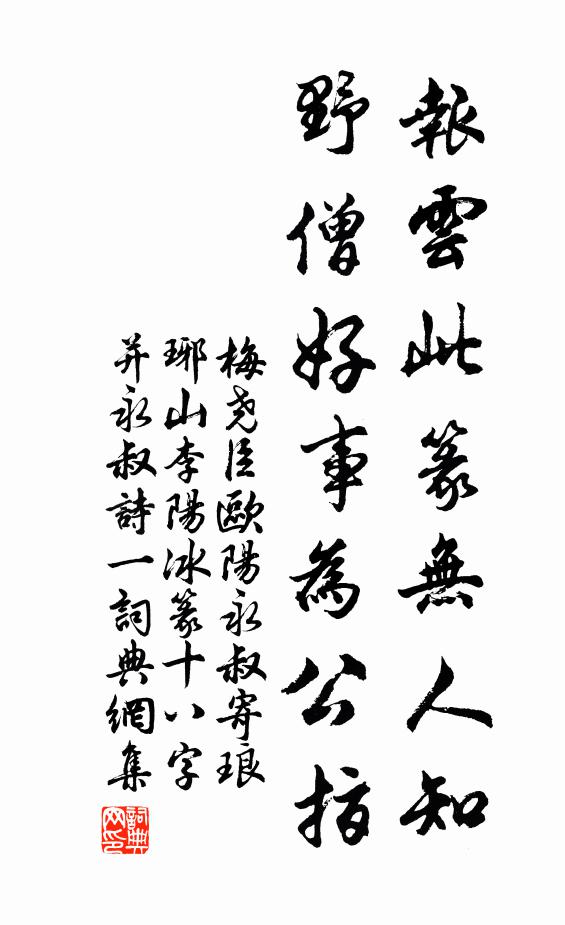 報雲此篆無人知
野僧好事為公指
梅尧臣歐陽永叔寄琅
琊山李陽冰篆十八字
并永叔詩一詞典網集
詞典
网印